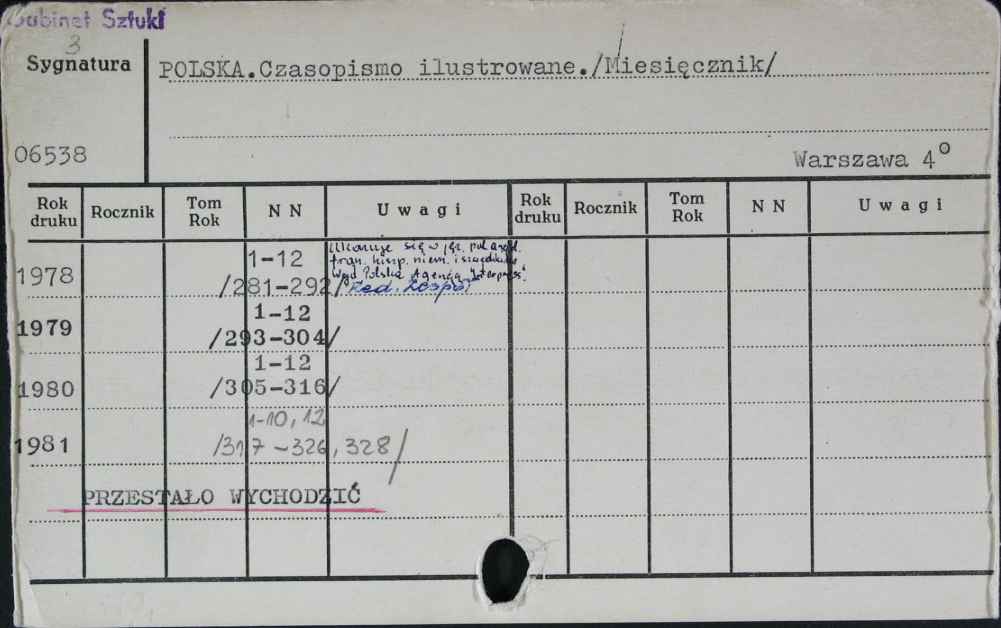 Gabinet Sztuki
3
Sygnatura
POLSKA.Czasopismo ilustrowane./Miesięcznik/
06538
Warszawa 4°
Rok druku Rocznik Tom Rok NN Uwagi Rok druku Rocznik Tom Rok NN Uwagi
Ukazuje się w jęz. pol. angl.
1978 1-12 fran. hiszp. niem. i szwedzkim
Wyd. Polska Agencja "Interpress".
/281-292/ Red. Zespół
1-12
1979 /293-304/
1-12
1980 /305-316/
1-10, 12
1981 /317-326, 328/
PRZESTAŁO WYCHODZIĆ